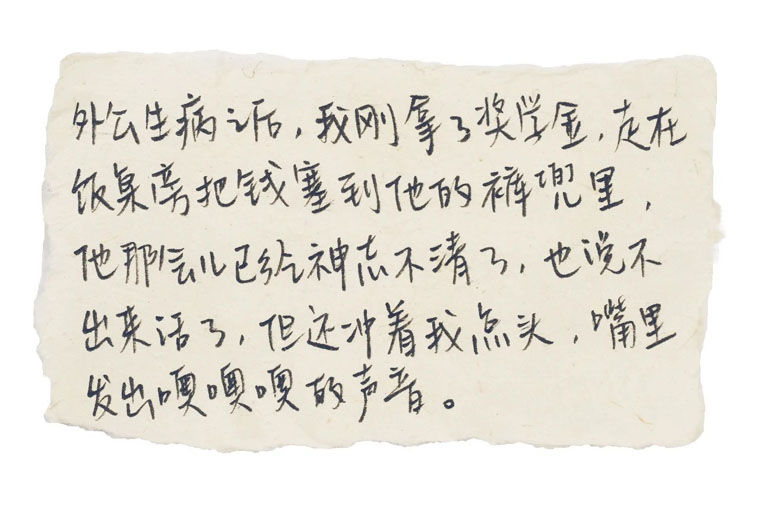 外公生病之后，我刚拿了奖学金，走在
饭桌旁把钱塞到他的裤兜里，
他那会儿已经神志不清了，也说不
出来话了，但还冲着我点头，嘴里
发出噢噢噢的声音。